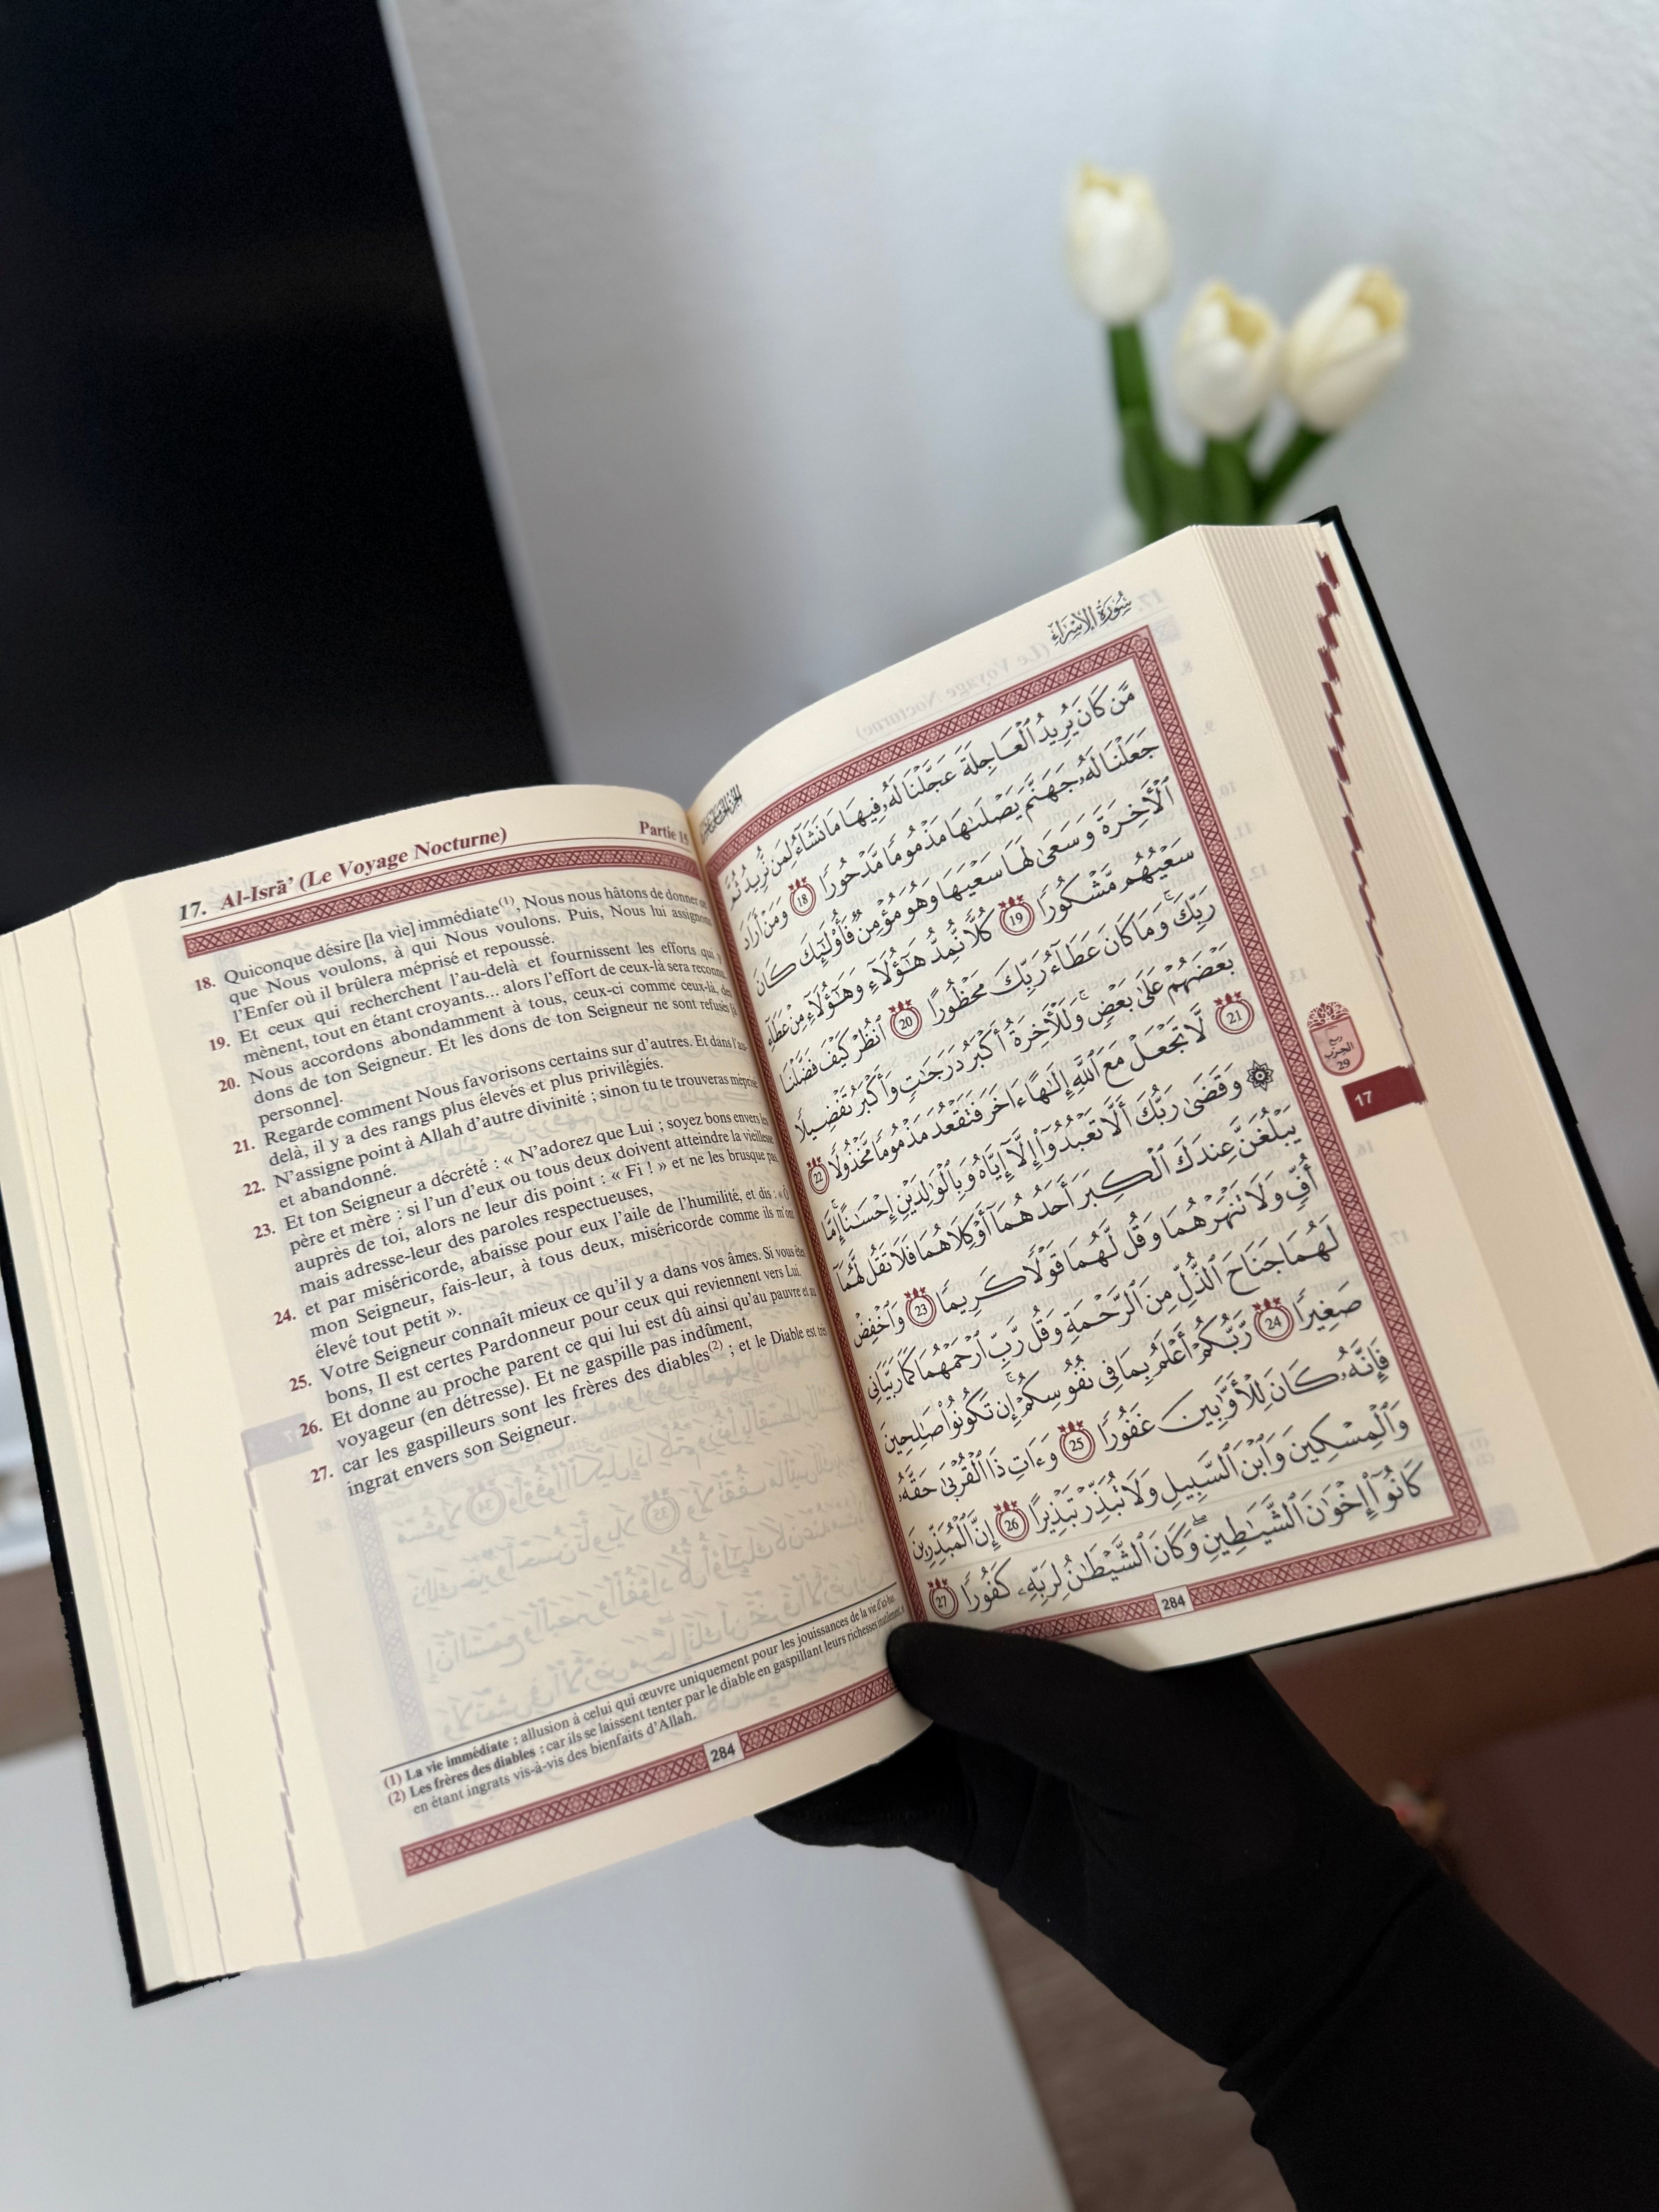 17. Al-Isrā’ (Le Voyage Nocturne) Partie 15
18. Quiconque désire [la vie] immédiate(1), Nous nous hâtons de donner ce
que Nous voulons, à qui Nous voulons. Puis, Nous lui assignons
l’Enfer où il brûlera méprisé et repoussé.
19. Et ceux qui recherchent l’au-delà et fournissent les efforts qui y
mènent, tout en étant croyants... alors l’effort de ceux-là sera reconnu.
20. Nous accordons abondamment à tous, ceux-ci comme ceux-là, des
dons de ton Seigneur. Et les dons de ton Seigneur ne sont refusés [à
personne].
21. Regarde comment Nous favorisons certains sur d’autres. Et dans l’au-
delà, il y a des rangs plus élevés et plus privilégiés.
22. N’assigne point à Allah d’autre divinité ; sinon tu te trouveras méprisé
et abandonné.
23. Et ton Seigneur a décrété : « N’adorez que Lui ; soyez bons envers les
père et mère : si l’un d’eux ou tous deux doivent atteindre la vieillesse
auprès de toi, alors ne leur dis point : « Fi ! » et ne les brusque pas,
mais adresse-leur des paroles respectueuses,
24. et par miséricorde, abaisse pour eux l’aile de l’humilité, et dis : « Ô
mon Seigneur, fais-leur, à tous deux, miséricorde comme ils m’ont
élevé tout petit ».
25. Votre Seigneur connaît mieux ce qu’il y a dans vos âmes. Si vous êtes
bons, Il est certes Pardonneur pour ceux qui reviennent vers Lui.
26. Et donne au proche parent ce qui lui est dû ainsi qu’au pauvre et au
voyageur (en détresse). Et ne gaspille pas indûment,
27. car les gaspilleurs sont les frères des diables(2) ; et le Diable est très
ingrat envers son Seigneur.
(1) La vie immédiate : allusion à celui qui œuvre uniquement pour les jouissances de la vie d’ici-bas.
(2) Les frères des diables : car ils se laissent tenter par le diable en gaspillant leurs richesses inutilement, et
en étant ingrats vis-à-vis des bienfaits d’Allah.
284
سُورَةُ الإِسْرَاءِ
مَّن كَانَ يُرِيدُ ٱلْعَاجِلَةَ عَجَّلْنَا لَهُۥ فِيهَا مَا نَشَآءُ لِمَن نُّرِيدُ ثُمَّ
جَعَلْنَا لَهُۥ جَهَنَّمَ يَصْلَىٰهَا مَذْمُومًا مَّدْحُورًا 18 وَمَنْ أَرَادَ
ٱلْأٓخِرَةَ وَسَعَىٰ لَهَا سَعْيَهَا وَهُوَ مُؤْمِنٌ فَأُو۟لَٰٓئِكَ كَانَ
سَعْيُهُم مَّشْكُورًا 19 كُلًّا نُّمِدُّ هَٰٓؤُلَآءِ وَهَٰٓؤُلَآءِ مِنْ عَطَآءِ
رَبِّكَ ۚ وَمَا كَانَ عَطَآءُ رَبِّكَ مَحْظُورًا 20 ٱنظُرْ كَيْفَ فَضَّلْنَا
بَعْضَهُمْ عَلَىٰ بَعْضٍ ۚ وَلَلْأٓخِرَةُ أَكْبَرُ دَرَجَٰتٍ وَأَكْبَرُ تَفْضِيلًا
21 لَّا تَجْعَلْ مَعَ ٱللَّهِ إِلَٰهًا ءَاخَرَ فَتَقْعُدَ مَذْمُومًا مَّخْذُولًا 22
۞ وَقَضَىٰ رَبُّكَ أَلَّا تَعْبُدُوٓا۟ إِلَّآ إِيَّاهُ وَبِٱلْوَٰلِدَيْنِ إِحْسَٰنًا ۚ إِمَّا
يَبْلُغَنَّ عِندَكَ ٱلْكِبَرَ أَحَدُهُمَآ أَوْ كِلَاهُمَا فَلَا تَقُل لَّهُمَآ
أُفٍّ وَلَا تَنْهَرْهُمَا وَقُل لَّهُمَا قَوْلًا كَرِيمًا 23 وَٱخْفِضْ
لَهُمَا جَنَاحَ ٱلذُّلِّ مِنَ ٱلرَّحْمَةِ وَقُل رَّبِّ ٱرْحَمْهُمَا كَمَا رَبَّيَانِى
صَغِيرًا 24 رَّبُّكُمْ أَعْلَمُ بِمَا فِى نُفُوسِكُمْ ۚ إِن تَكُونُوا۟ صَٰلِحِينَ
فَإِنَّهُۥ كَانَ لِلْأَوَّٰبِينَ غَفُورًا 25 وَءَاتِ ذَا ٱلْقُرْبَىٰ حَقَّهُۥ
وَٱلْمِسْكِينَ وَٱبْنَ ٱلسَّبِيلِ وَلَا تُبَذِّرْ تَبْذِيرًا 26 إِنَّ ٱلْمُبَذِّرِينَ
كَانُوٓا۟ إِخْوَٰنَ ٱلشَّيَٰطِينِ ۖ وَكَانَ ٱلشَّيْطَٰنُ لِرَبِّهِۦ كَفُورًا 27
284
ربع
الحزب
29
17